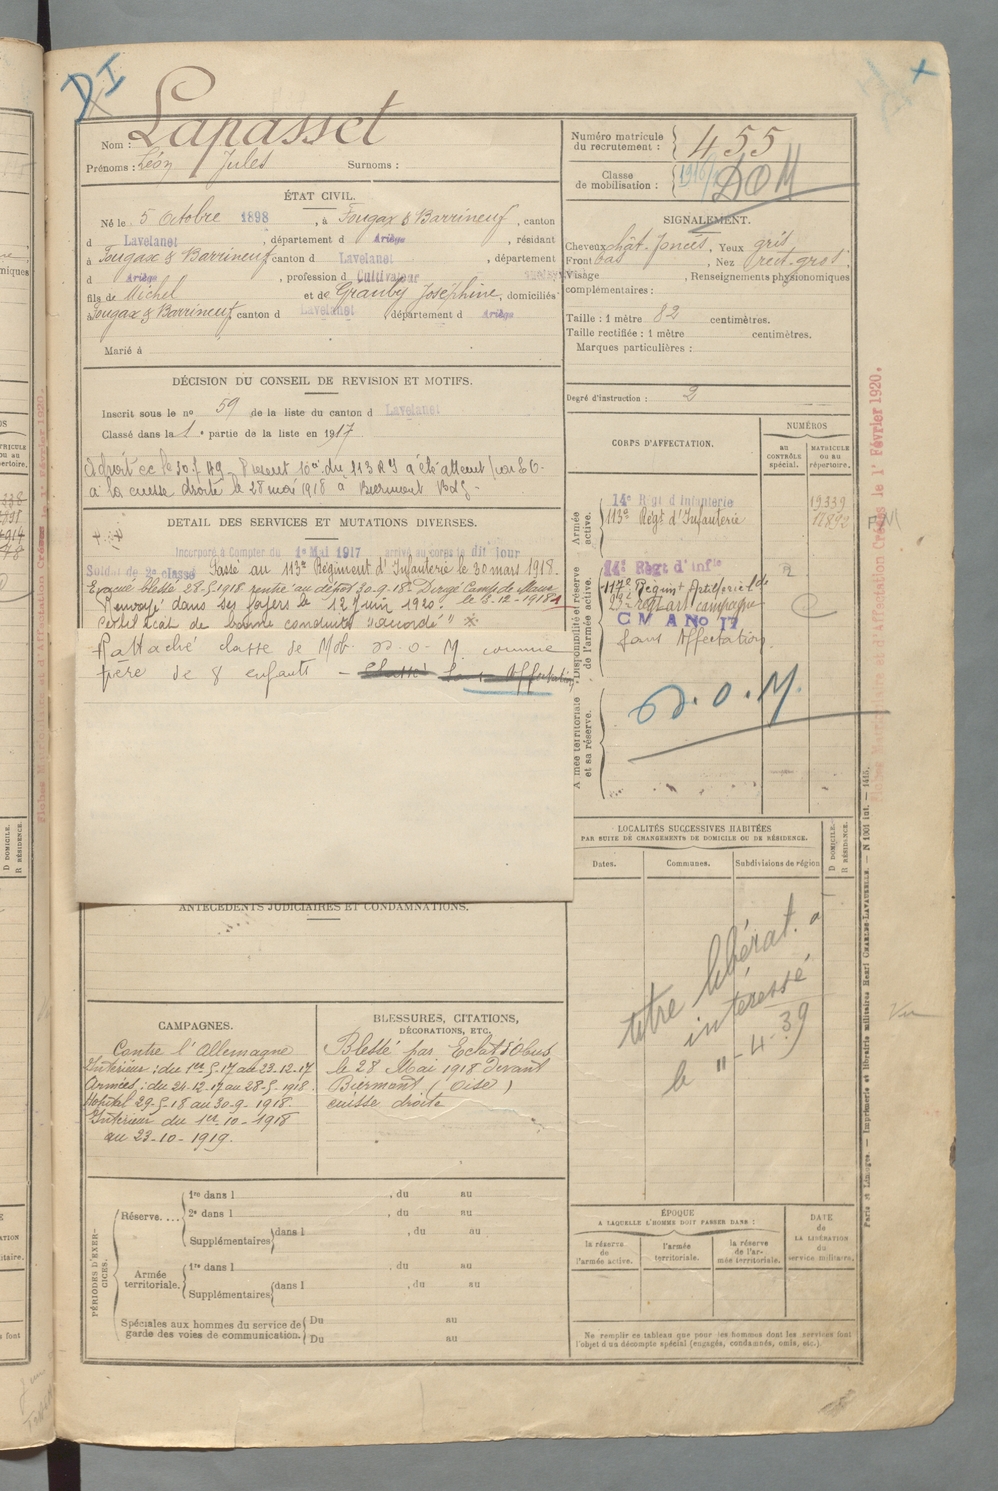 Nom : Lapasset
Prénoms : Léon Jules Surnoms :
ÉTAT CIVIL.
Né le 5 Octobre 1898, à Fougax & Barrineuf, canton
d Lavelanet, département d Ariège, résidant
à Fougax & Barrineuf canton d Lavelanet, département
d Ariège, profession d Cultivateur
fils de Michel et de Grauby Joséphine, domiciliés
à Fougax & Barrineuf canton d Lavelanet département d Ariège
Marié à
DÉCISION DU CONSEIL DE REVISION ET MOTIFS.
Inscrit sous le no 59 de la liste du canton d Lavelanet
Classé dans la 1e partie de la liste en 1917
du 113 R I a été atteint par E O
à la cuisse droite le 28 mai 1918 à Biermont
DÉTAIL DES SERVICES ET MUTATIONS DIVERSES.
Incorporé à Compter du 1er Mai 1917 arrivé au corps le dit jour
Soldat de 2e classe Passé au 113e Régiment d'Infanterie le 30 mars 1918.
Evacué blessé 28-5-1918 rentré au dépôt 30-9-18 Dirigé Camp de
le 8-12-1918
Renvoyé dans ses foyers le 12 Juin 1920.
Certificat de bonne conduite "accordé"
Rattaché classe de Mob. D.O.M. comme
père de 8 enfants - Classé Sans Affectation
ANTÉCÉDENTS JUDICIAIRES ET CONDAMNATIONS.
CAMPAGNES.
Contre l'Allemagne
Intérieur : du 1er-5-17 au 23-12-17
Armées : du 24-12-17 au 28-5-1918.
Hôpital 29-5-18 au 30-9-1918.
Intérieur du 1er-10-1918
au 23-10-1919.
BLESSURES, CITATIONS,
DÉCORATIONS, ETC.
Blessé par Eclat d'Obus
le 28 Mai 1918 devant
Biermont (Oise)
cuisse droite
PÉRIODES D'EXERCICES.
Réserve....
1re dans l , du au
2e dans l , du au
Supplémentaires dans l , du au
Armée territoriale.
1re dans l , du au
Supplémentaires dans l , du au
Spéciales aux hommes du service de garde des voies de communication.
Du au
Du au
Numéro matricule
du recrutement : 455
Classe
de mobilisation : DOM
SIGNALEMENT.
Cheveux chât. foncés, Yeux gris
Front bas, Nez rect. gros,
Visage , Renseignements physionomiques
complémentaires :
Taille : 1 mètre 82 centimètres.
Taille rectifiée : 1 mètre centimètres.
Marques particulières :
Degré d'instruction : 2
CORPS D'AFFECTATION.
NUMÉROS
AU CONTRÔLE spécial.
MATRICULE OU AU répertoire.
Armée active.
14e Régt d'Infanterie 19339
113e Régt d'Infanterie
Disponibilité et réserve de l'armée active.
14e Régt d'Infie
117e Régint Artillerie Lde
régt art campagne
C M A No 17
Sans Affectation
Armée territoriale et sa réserve.
D.O.M.
LOCALITÉS SUCCESSIVES HABITÉES
PAR SUITE DE CHANGEMENTS DE DOMICILE OU DE RÉSIDENCE.
Dates. Communes. Subdivisions de région
D DOMICILE.
R RÉSIDENCE.
titre libérat. à
intéressé
le 11-4-39
ÉPOQUE
A LAQUELLE L'HOMME DOIT PASSER DANS :
la réserve de l'armée active.
l'armée territoriale.
la réserve de l'armée territoriale.
DATE de LA LIBÉRATION du service militaire.
Ne remplir ce tableau que pour les hommes dont les services font
l'objet d'un décompte spécial (engagés, condamnés, omis, etc.).
Fiches Matricule et d'Affectation Créées le 1r Février 1920.
Paris et Limoges. — Imprimerie et librairie militaires Henri CHARLES-LAVAUZELLE. — N 1001 int. — 1415.
Vu